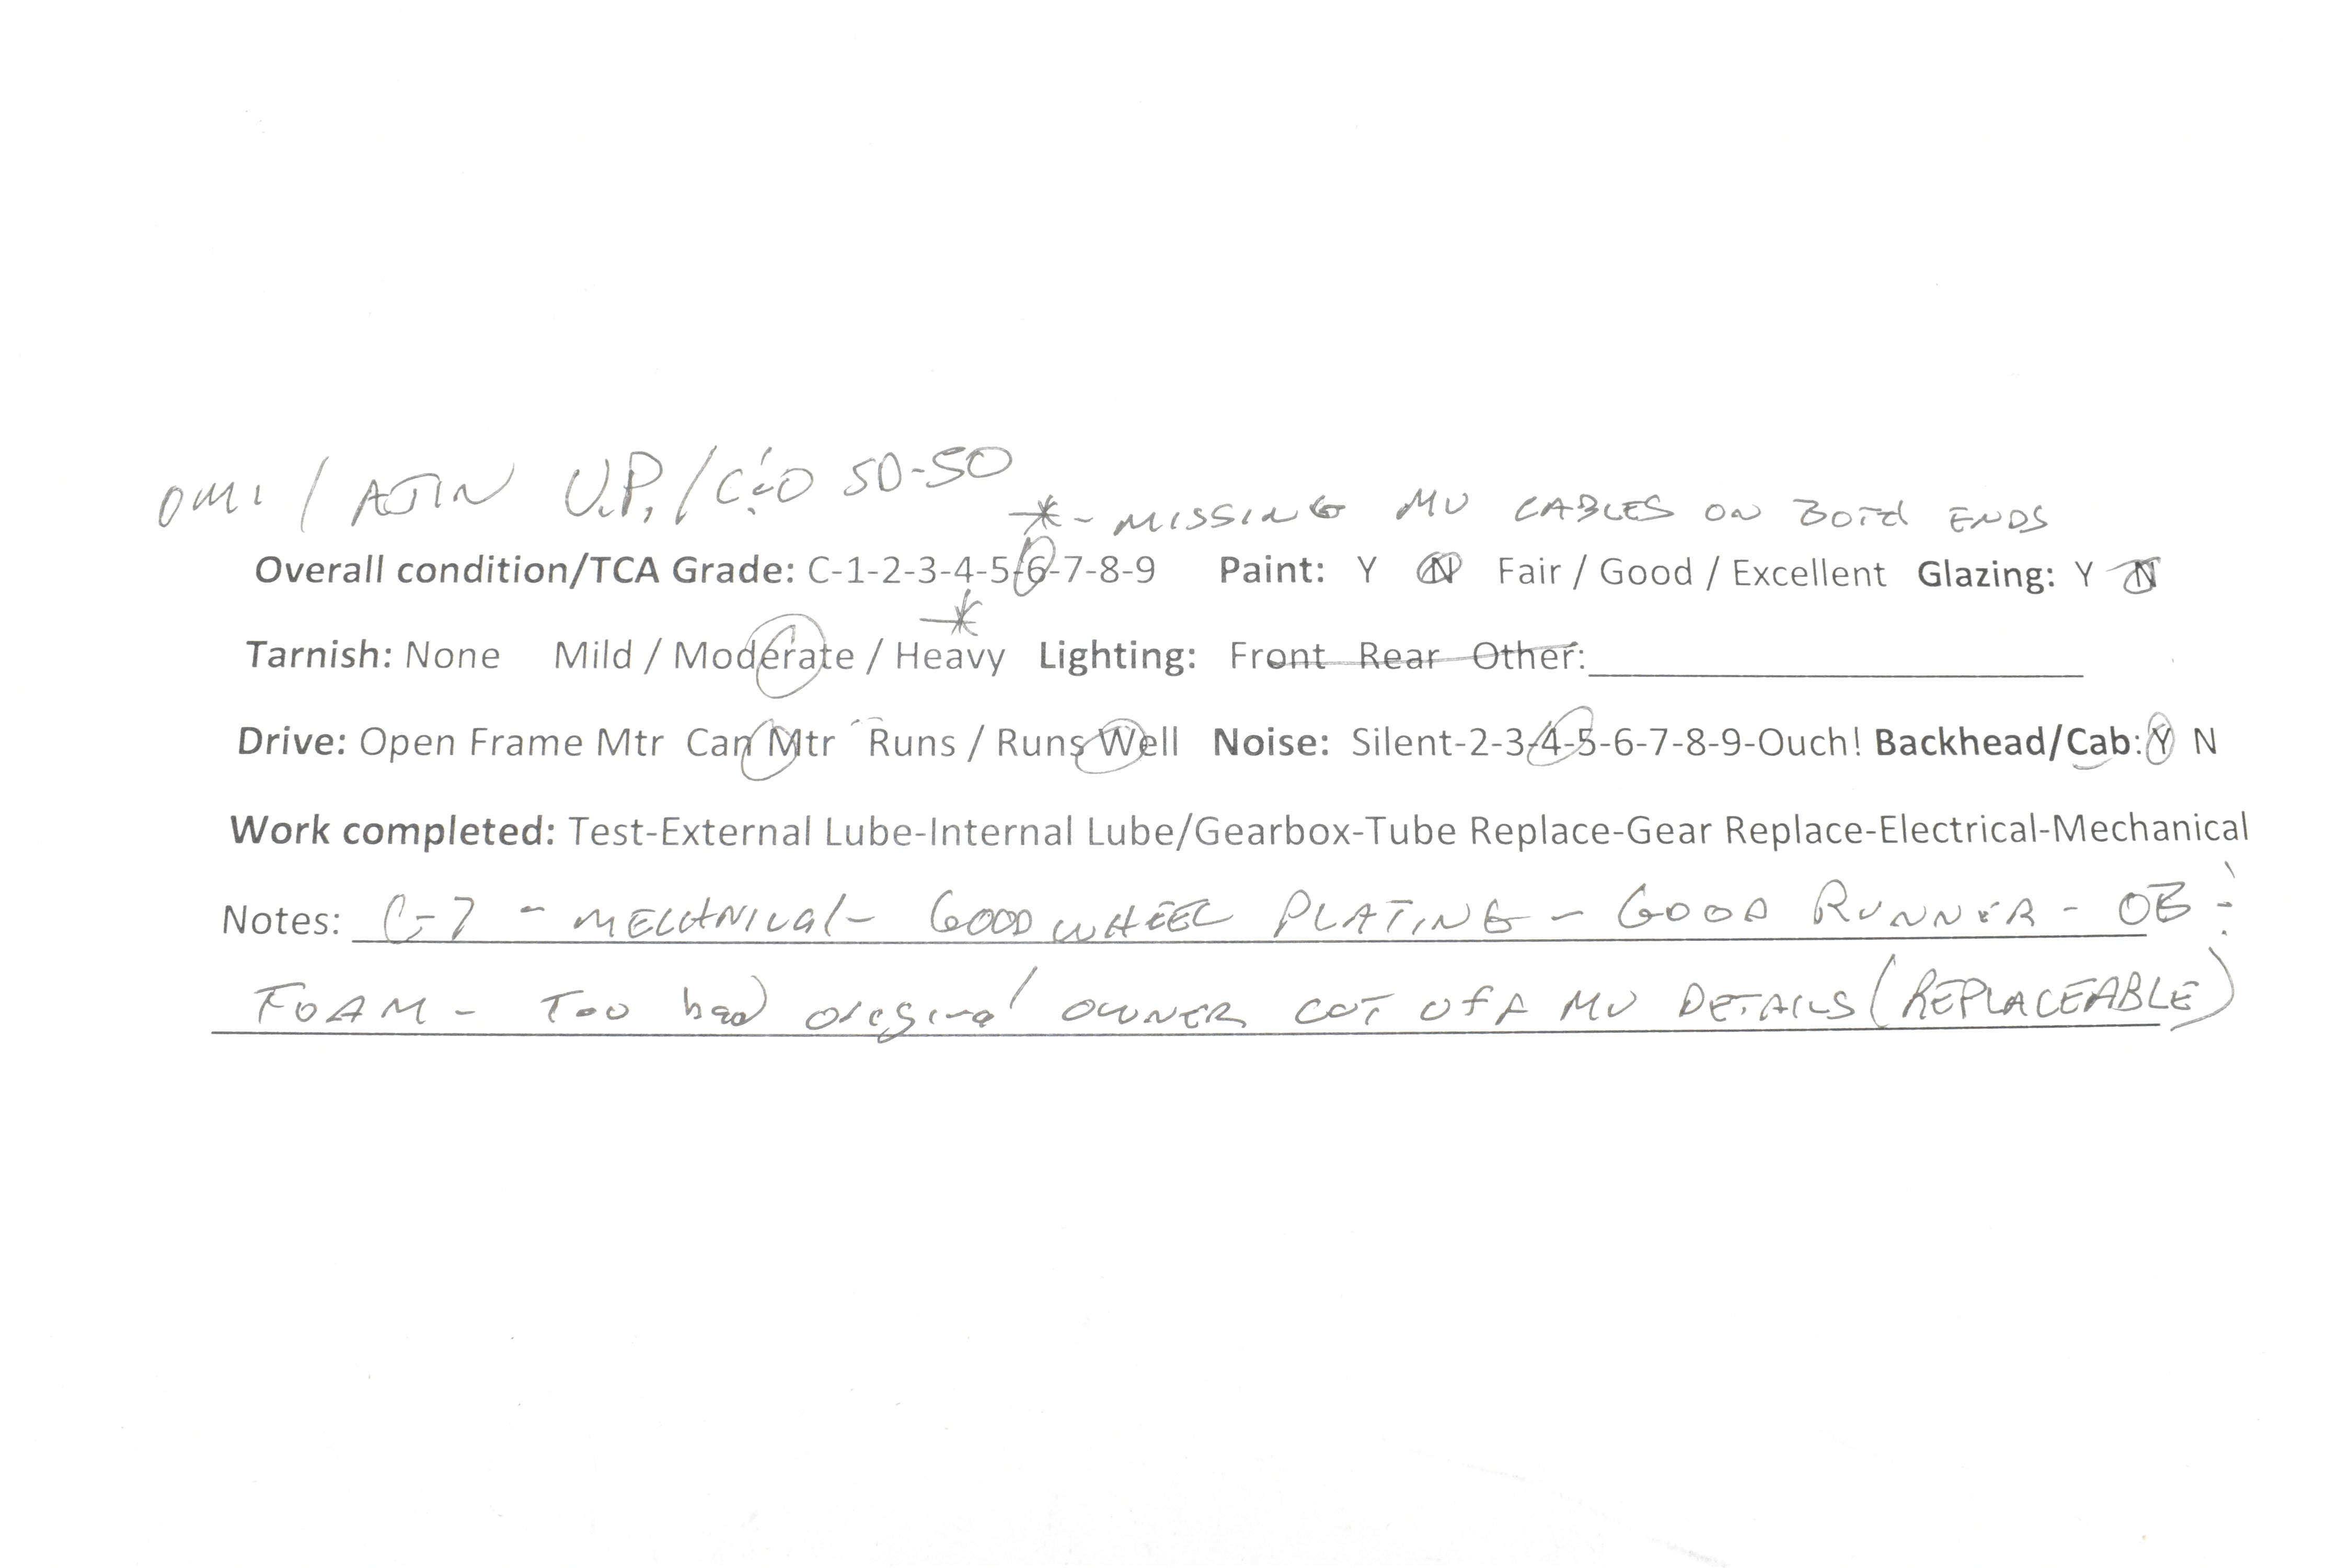 OMI / AJIN U.P. / C&O 50-50
* - MISSING MU CABLES ON BOTH ENDS
Overall condition/TCA Grade: C-1-2-3-4-5-6-7-8-9 Paint: Y N Fair / Good / Excellent Glazing: Y N
*
Tarnish: None Mild / Moderate / Heavy Lighting: Front Rear Other:
Drive: Open Frame Mtr Can Mtr Runs / Runs Well Noise: Silent-2-3-4-5-6-7-8-9-Ouch! Backhead/Cab: Y N
Work completed: Test-External Lube-Internal Lube/Gearbox-Tube Replace-Gear Replace-Electrical-Mechanical
Notes: C-7 - MECHANICAL - GOOD WHEEL PLATING - GOOD RUNNER - OB :
FOAM - Too bad original OWNER CUT OFF MU DETAILS (REPLACEABLE)